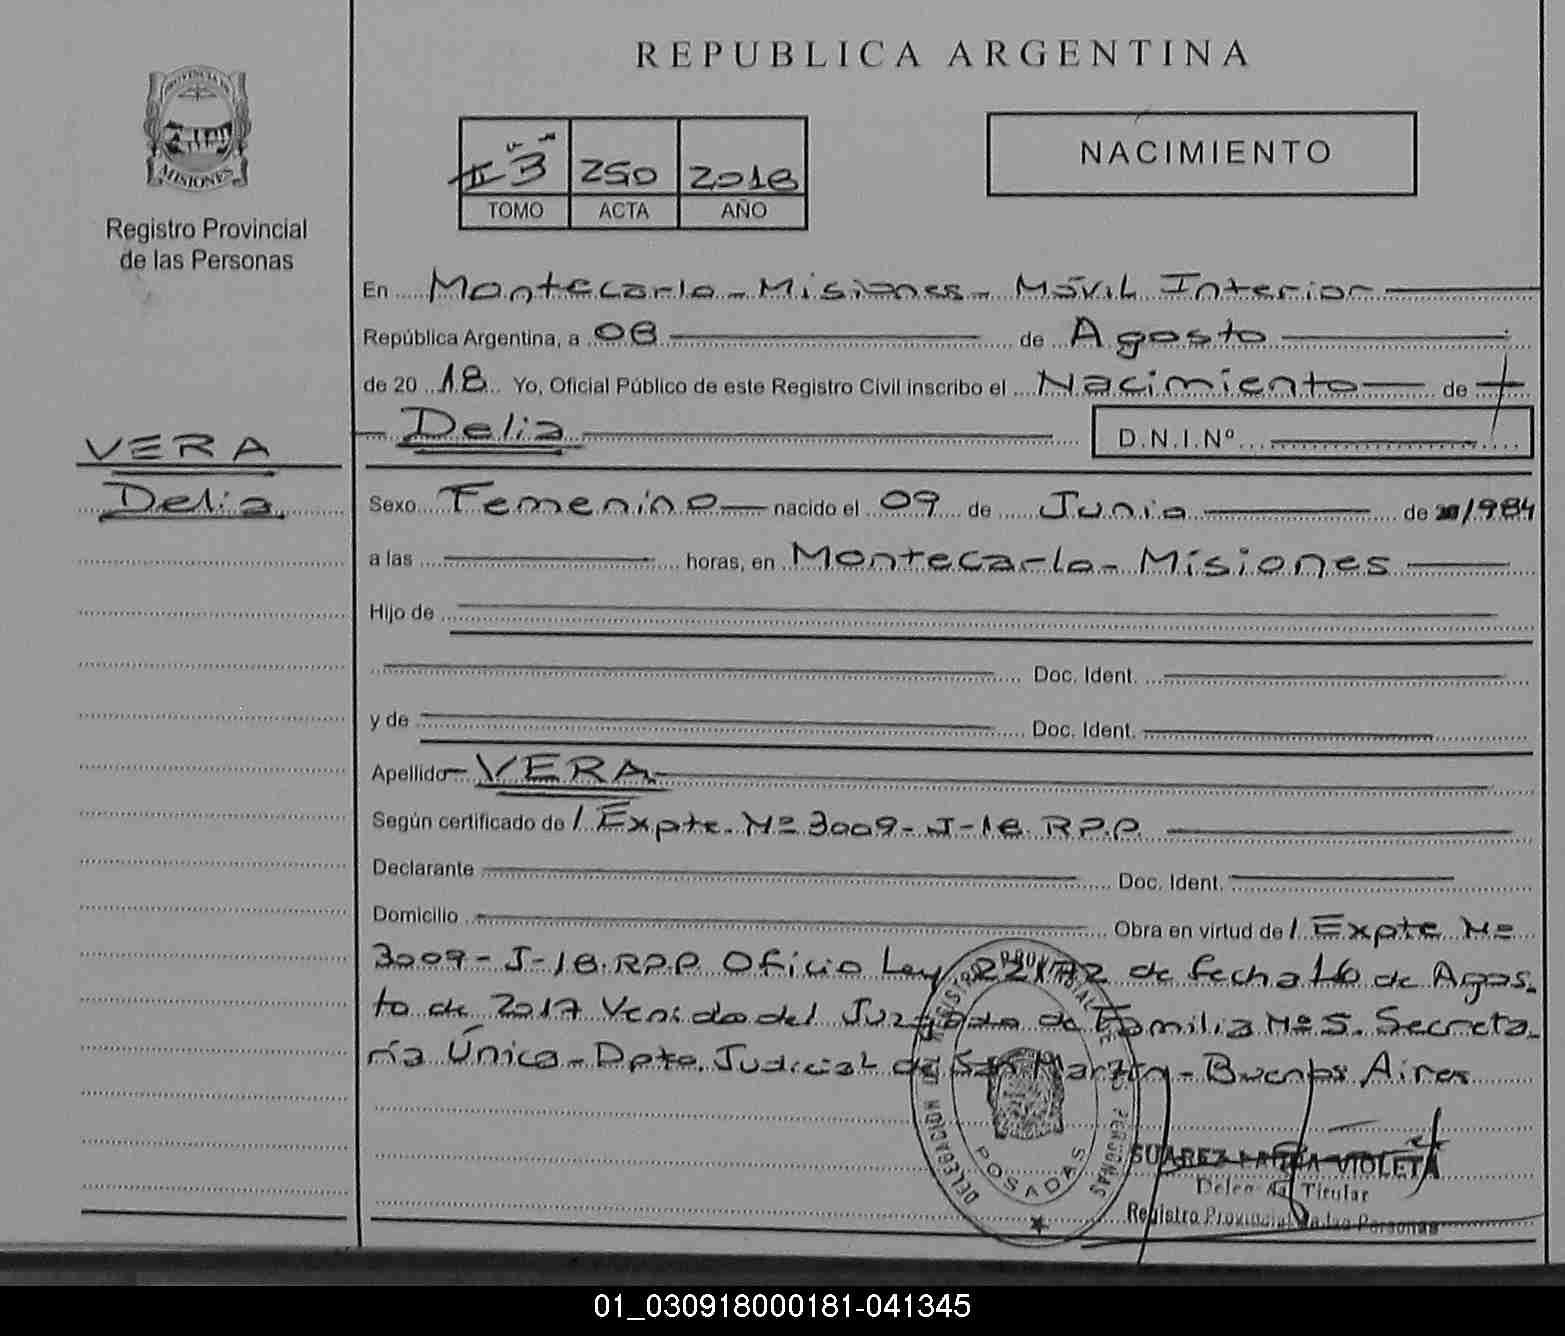 REPUBLICA ARGENTINA
PROVINCIA DE
MISIONES
Registro Provincial
de las Personas
3 250 2018
TOMO ACTA AÑO
NACIMIENTO
En Montecarlo - Misiones - Móvil Interior
República Argentina, a 08 de Agosto
de 20 18 Yo, Oficial Público de este Registro Civil inscribo el Nacimiento de
Delia D.N.I.Nº
VERA
Delia
Sexo Femenino nacido el 09 de Junio de 1984
a las horas, en Montecarlo - Misiones
Hijo de
Doc. Ident.
y de Doc. Ident.
Apellido VERA
Según certificado de / Expte. Nº 3009 - J - 18. R.P.P.
Declarante Doc. Ident.
Domicilio Obra en virtud de / Expte Nº
3009 - J - 18. R.P.P Oficio Ley 22172 de fecha 16 de Agos-
to de 2017 Venido del Juzgado de Familia Nº 5. Secreta-
ría Única - Dpto. Judicial de San Martín - Buenos Aires
DELEGACION DEL REGISTRO PROVINCIAL DE LAS PERSONAS
POSADAS
SUAREZ VIOLETA
Titular
Registro Provincial de las Personas
01_030918000181-041345